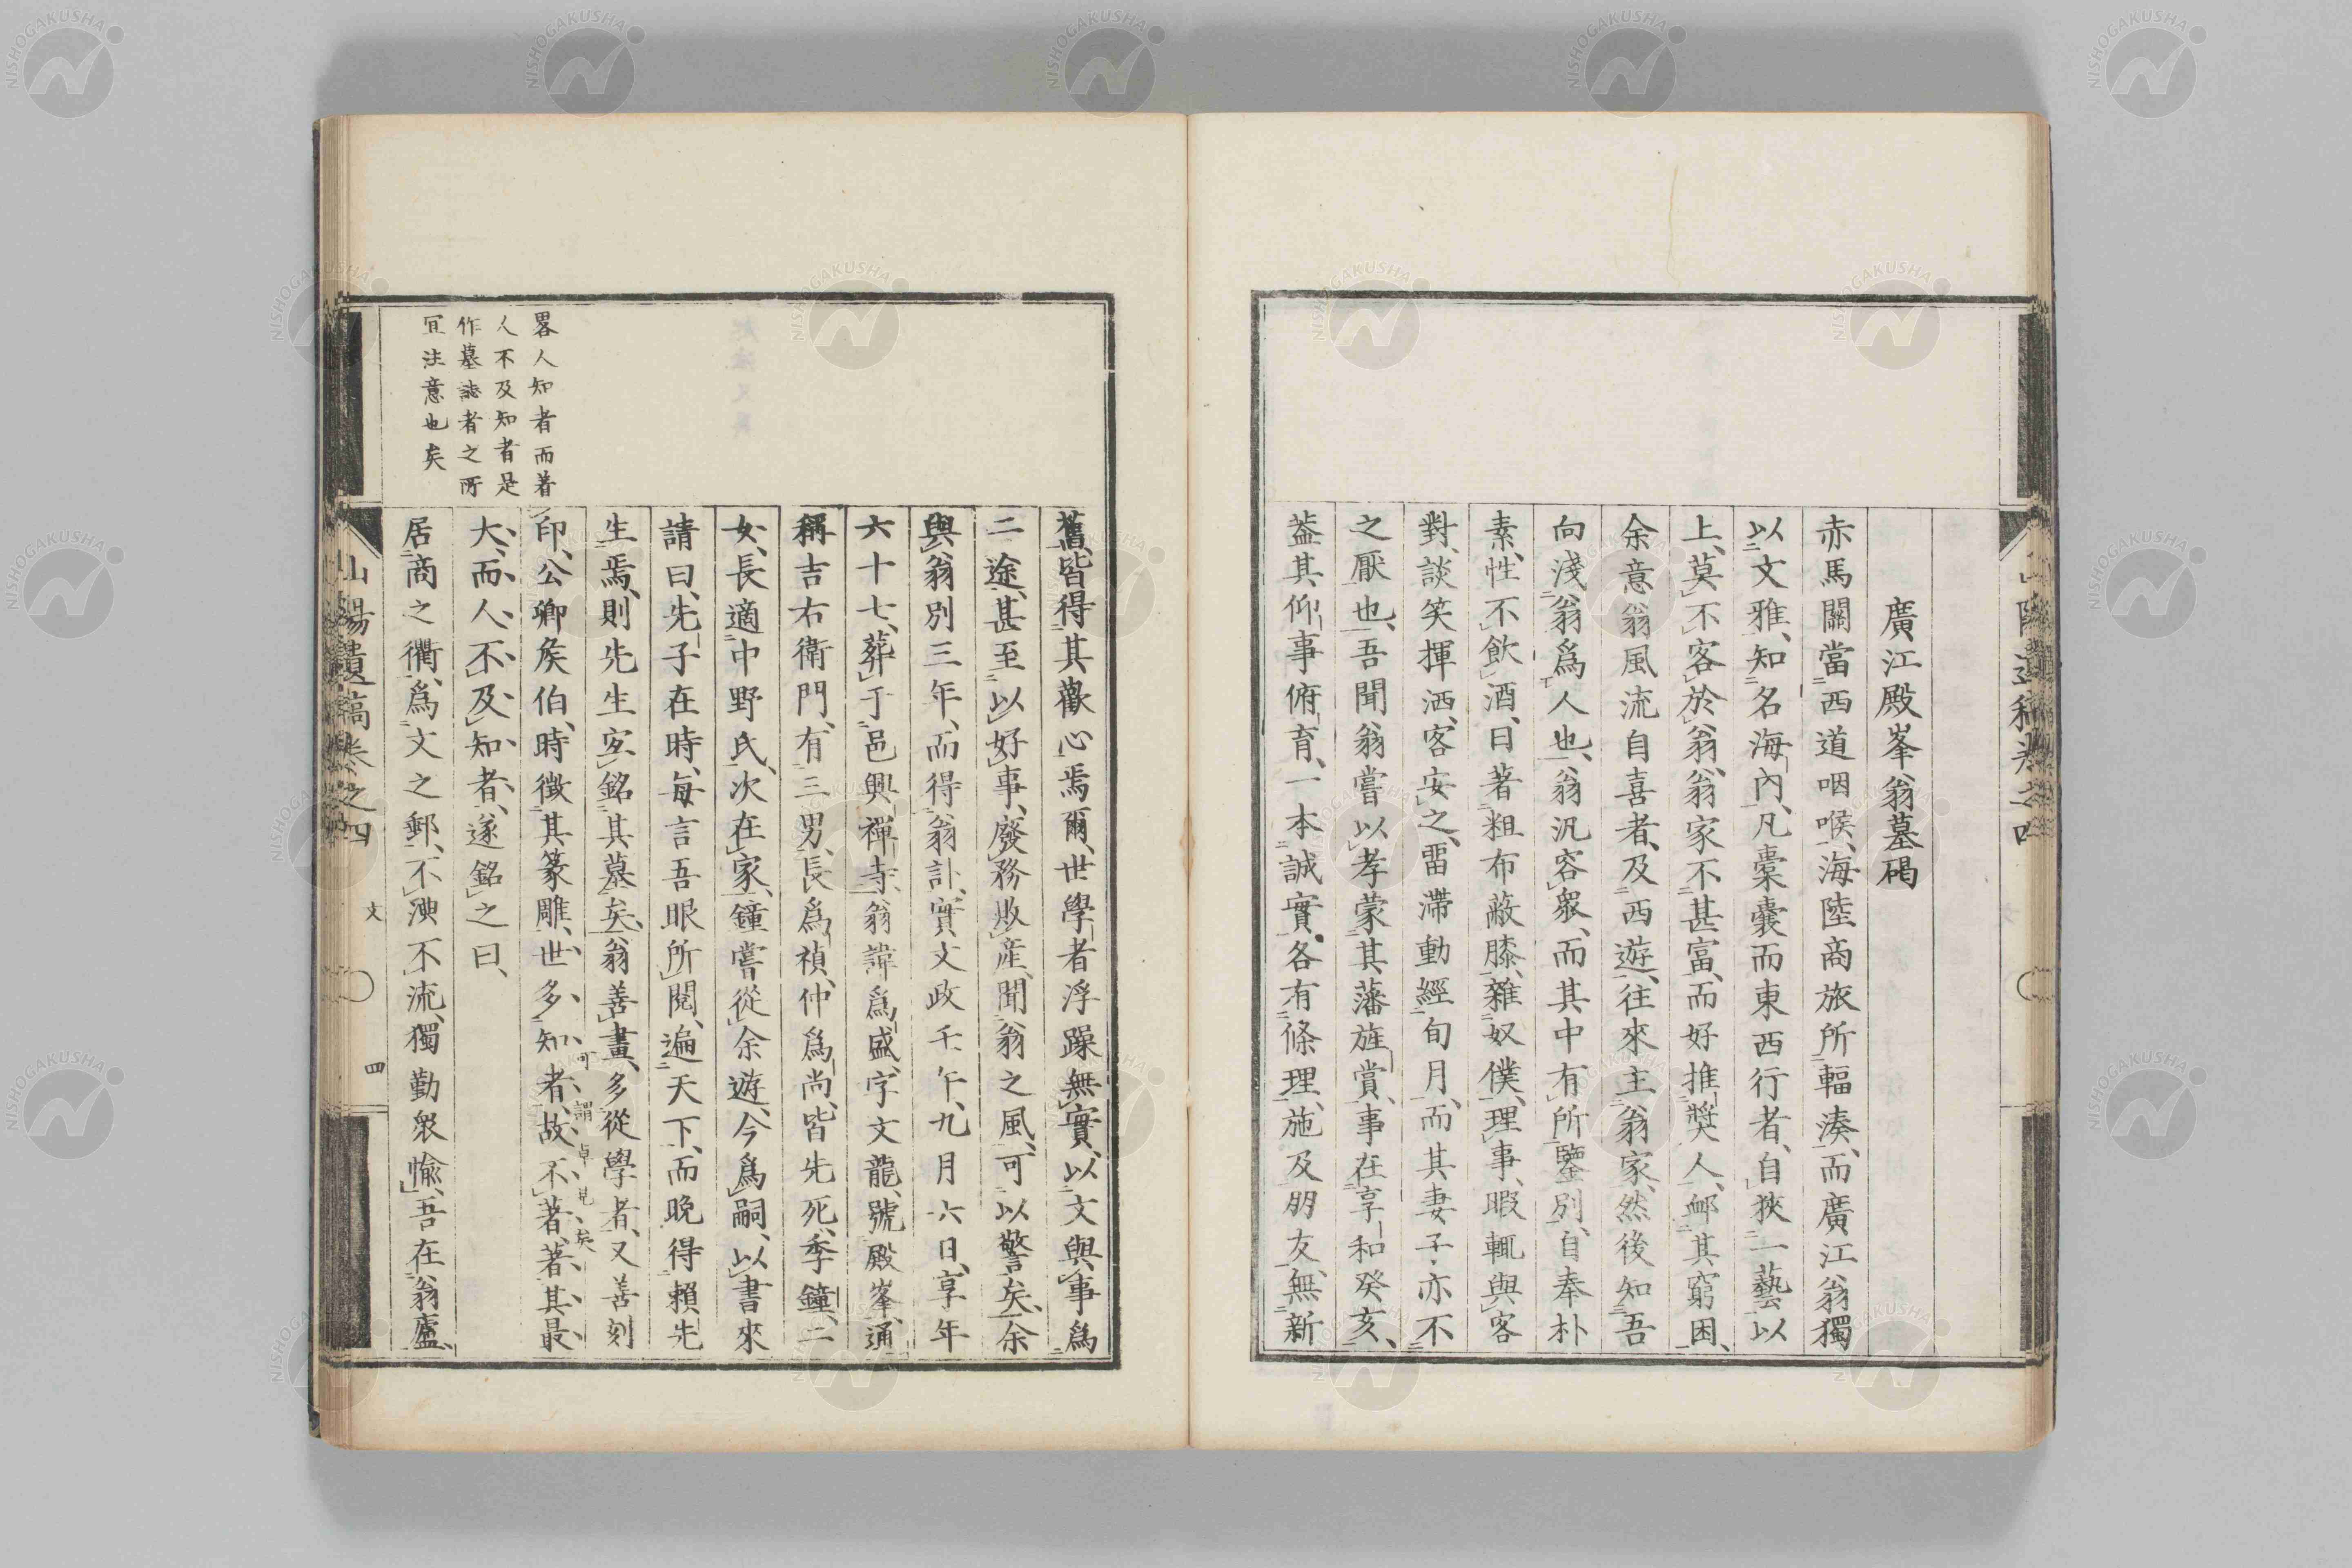 廣江殿峯翁墓碣
赤馬關當西道咽喉、海陸商旅所輻湊、而廣江翁獨
以文雅、知名海內、凡橐囊而東西行者、自挾一藝以
上、莫不客於翁、翁家不甚富、而好推奬人、䘏其窮困、
余意翁風流自喜者、及西遊、往來主翁家、然後知吾
向淺翁爲人也、翁汎容衆、而其中有所鑒別、自奉朴
素、性不飲酒、日著粗布蔽膝、雜奴僕、理事、暇輒與客
對、談笑揮洒、客安之、畱滯動經旬月、而其妻子亦不
之厭也、吾聞翁嘗以孝蒙其藩旌賞、事在享和癸亥、
葢其仰事俯育、一本誠實、各有條理、施及朋友、無新
舊、皆得其歡心焉爾、世學者浮躁無實、以文與事爲
二途、甚至以好事、廢務敗產、聞翁之風、可以警矣、余
與翁別三年、而得翁訃、實文政壬午、九月六日、享年
六十七、葬于邑興禪寺、翁諱爲盛、字文龍、號殿峯、通
稱吉右衛門、有三男、長爲禎、仲爲尚、皆先死、季鐘、二
女、長適中野氏、次在家、鐘嘗從余遊、今爲嗣、以書來
請曰、先子在時、每言吾眼所閱、遍天下、而晚得賴先
生焉、則先生宐銘其墓矣、翁善畫、多從學者、又善刻
可謂卓見矣
印、公卿矦伯、時徵其篆雕、世多知者、故不著、著其最
大、而人不及知者、遂銘之曰、
居商之衢、爲文之郵、不㴋不流、獨勤衆愉、吾在翁廬、
畧人知者而著
人不及知者是
作墓誌者之所
宜注意也矣
山陽遺稿卷之四
文
四
NISHOGAKUSHA